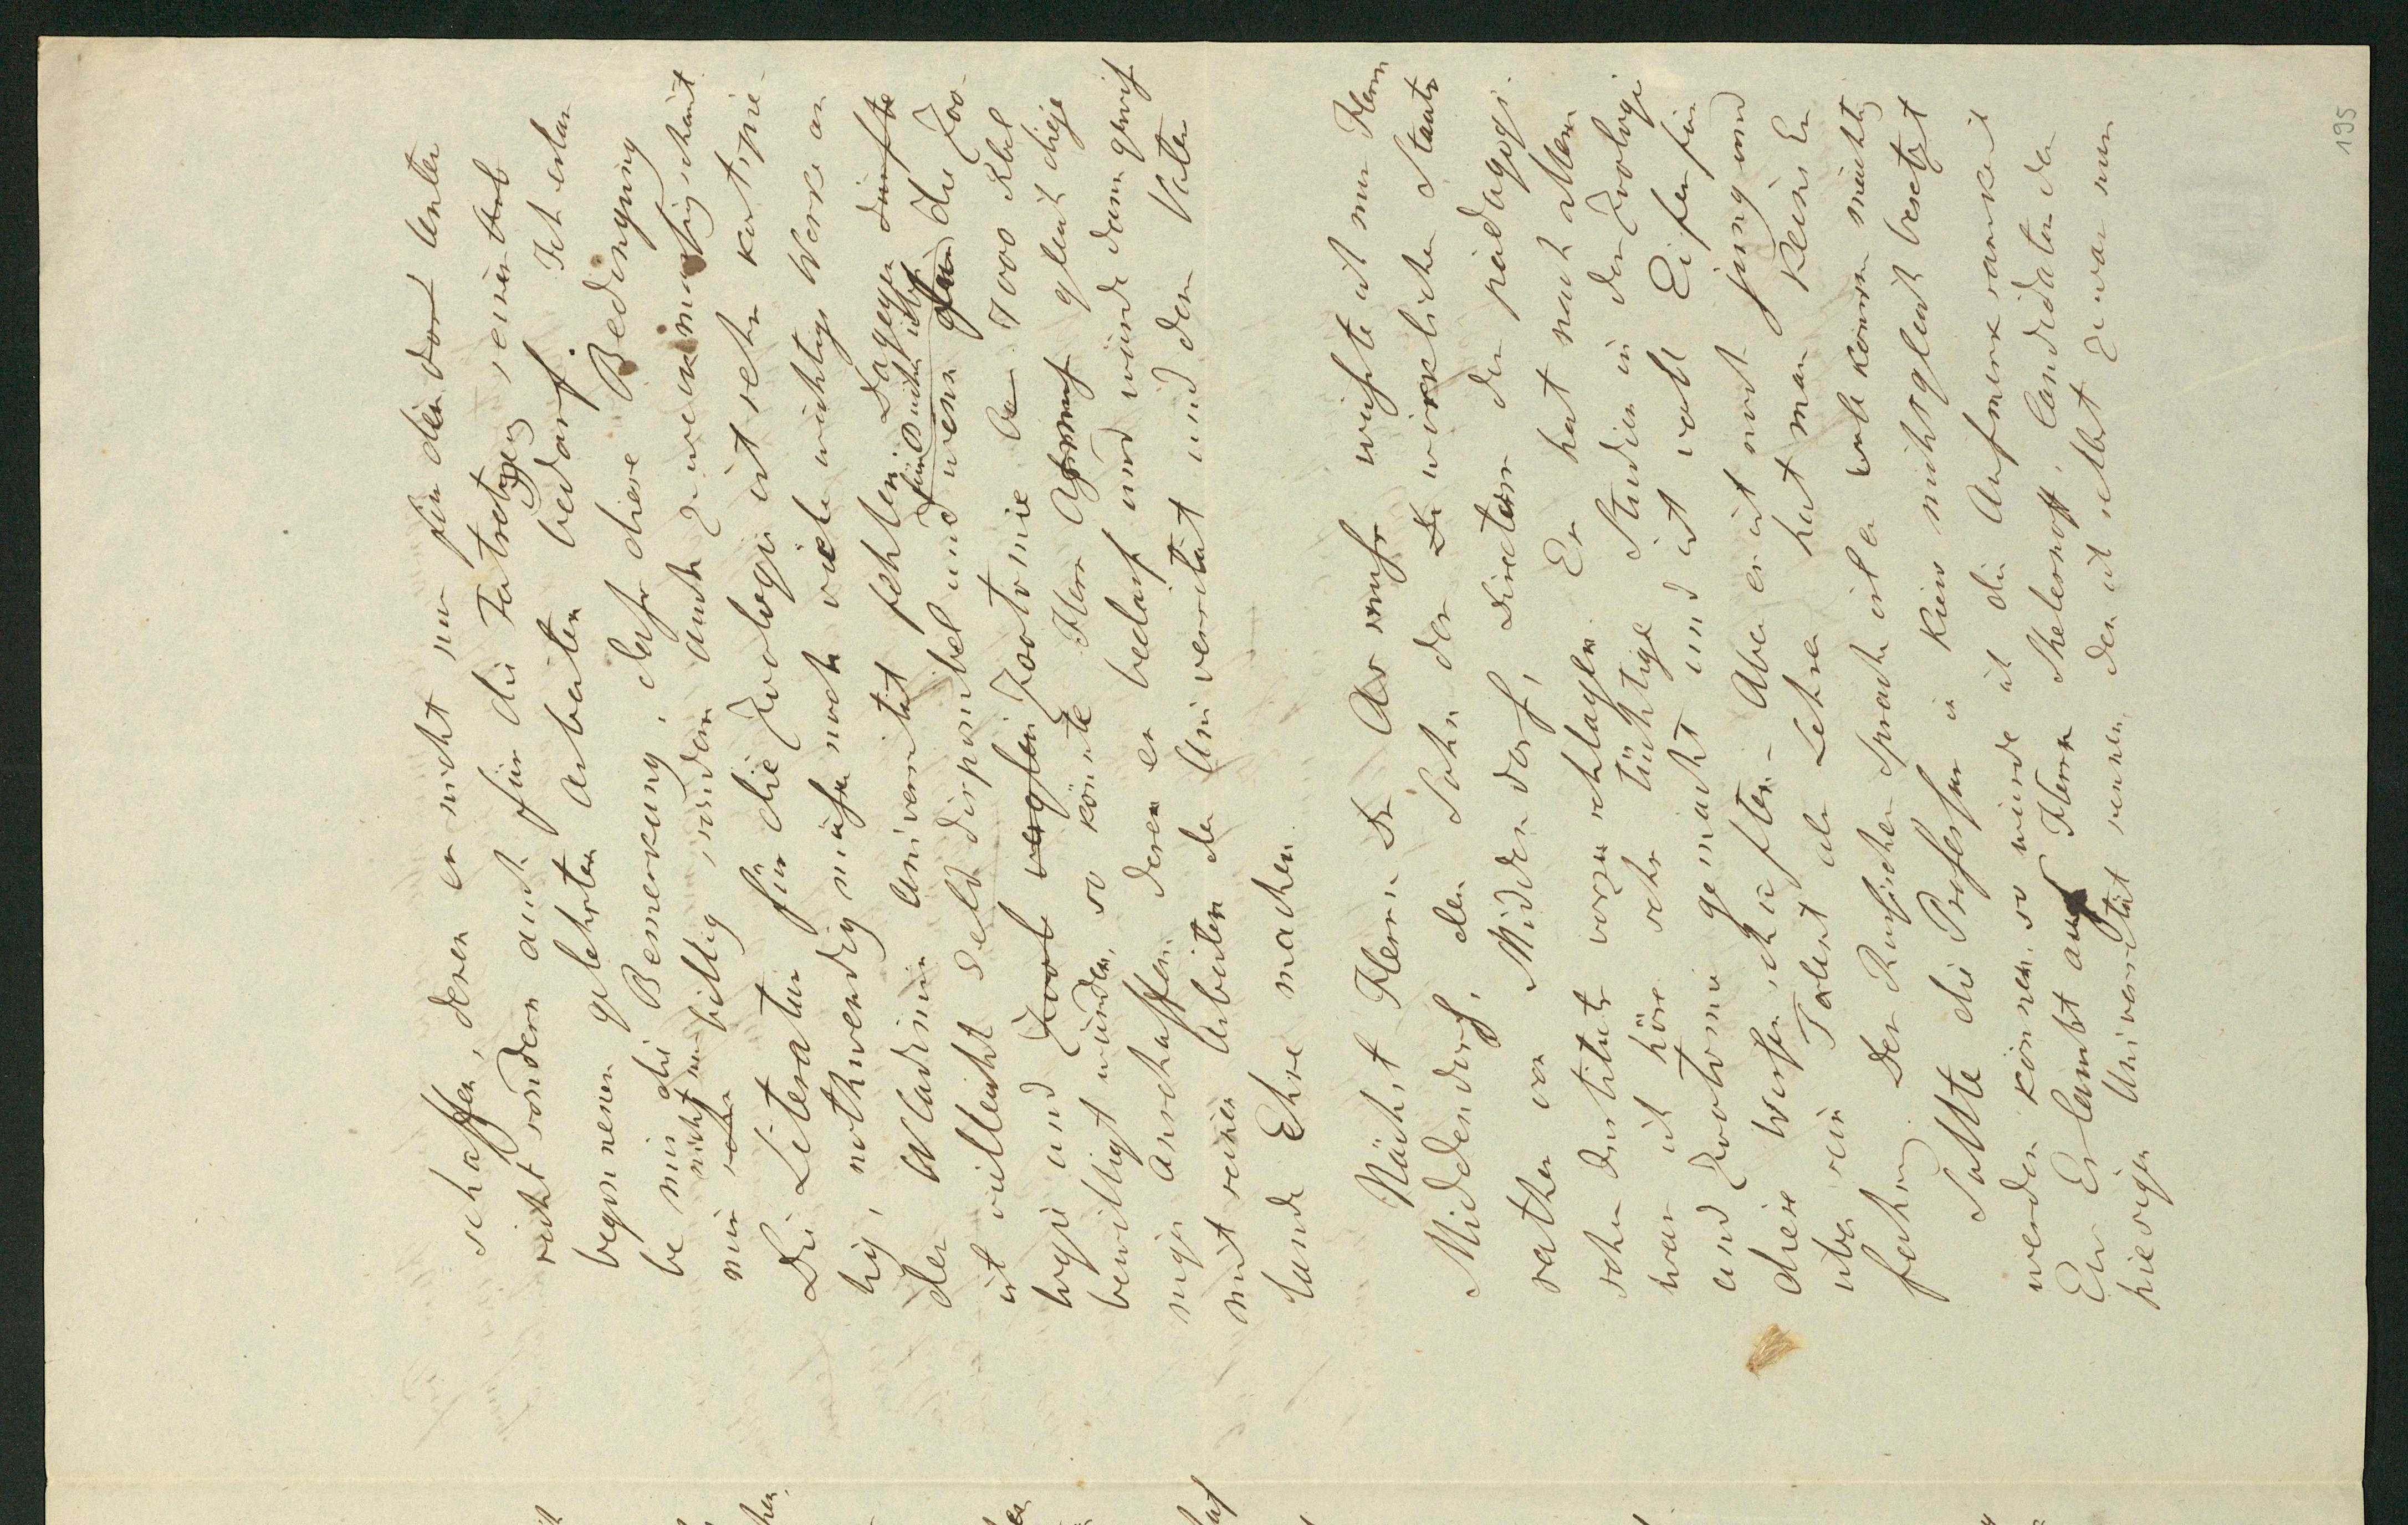 schaffen, deren er nicht nur für den dort Unter
richt sondern auch für die Fortsetzung seiner
begonnenen gelehrten Arbeiten bedarf. Ich erlau
be mir die Bemerkung, dass diese Bedingung
mir nicht nur billig, sondern auch zweckmässig scheint.
Die Literatur für die Zoologie ist sehr kostspie-
lig, nothwendig müssen noch viele wichtige Werke an
der Wladimir Universität fehlen. Dagegen dürfte
ist vielleicht Geld disponibel und wenn für Bücher über die Zoo-
logie und Zootomie 7000 Rbel
bewilligt würden, so könnte Herr Asmuss gleich dieje
nigen anschaffen, deren er bedarf und würde dann gewiss
mit seinen Arbeiten der Universität und dem Vater
lande Ehre machen.
Nächst Herrn Dr Asmuss wüsste ich nur Herrn
Middendorf, den Sohn des wirklichen Staats
rathes von Middendorf, Directors des pädagogi-
schen Instituts vorzuschlagen. Er hat nach allem
was ich höre sehr tüchtige Studien in der Zoologie
und Zootomie gemacht und ist voll Eifer für
diese Wissenschaften. Aber er ist noch jung und
über sein Talent als Lehrer hat man keine Er
fahrung. Der Russischen Sprache ist er vollkommen mächtig
Sollte die Professur in Kiew nicht gleich besetzt
werden können, so würde ich die Aufmerksamkeit
Ew Erlaucht auf Herrn, Candidaten der
hiesigen Universität nennen. Er war nun
195